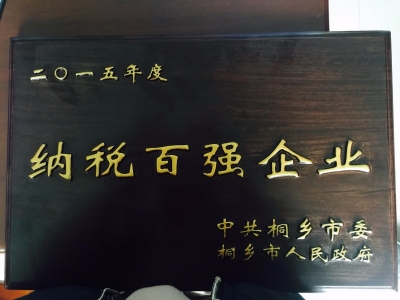 二〇一五年度
纳税百强企业
中共桐乡市委
桐乡市人民政府